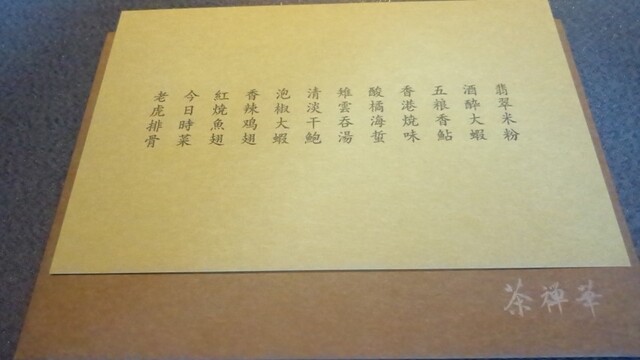 翡翠米粉
酒醉大蝦
五粮香鮎
香港燒味
酸橘海蜇
雉雲吞湯
清淡干鮑
泡椒大蝦
香辣鸡翅
紅燒魚翅
今日時菜
老虎排骨
茶禅華